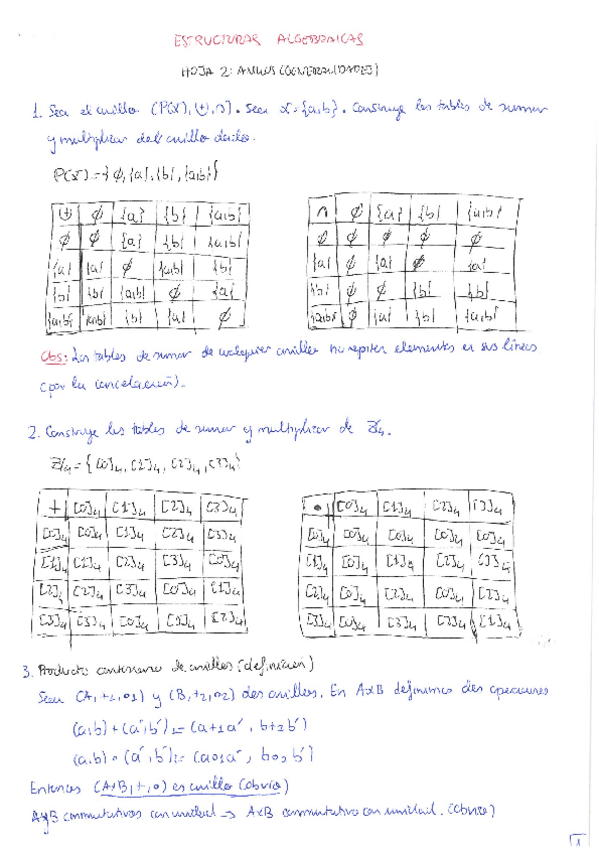 ESTRUCTURAS ALGEBRAICAS
HOJA 2: ANILLOS (GENERALIDADES)
1. Sea el anillo (P(X), ⊎, ∩). Sea X={a,b}. Construye las tablas de sumar
y multiplicar del anillo dado.
P(X)={∅,{a},{b},{a,b}}
⊎ ∅ {a} {b} {a,b}
∅ ∅ {a} {b} {a,b}
{a} {a} ∅ {a,b} {b}
{b} {b} {a,b} ∅ {a}
{a,b} {a,b} {b} {a} ∅
∩ ∅ {a} {b} {a,b}
∅ ∅ ∅ ∅ ∅
{a} ∅ {a} ∅ {a}
{b} ∅ ∅ {b} {b}
{a,b} ∅ {a} {b} {a,b}
Obs: Las tablas de sumar de cualquier anillo no repiten elementos en sus líneas
(por la cancelación).
2. Construye las tablas de sumar y multiplicar de Z/4.
Z/4={[0]4, [2]4, [3]4}
+ [0]4 [1]4 [2]4 [3]4
[0]4 [0]4 [1]4 [2]4 [3]4
[1]4 [2]4 [3]4 [0]4
[2]4 [2]4 [3]4 [0]4 [1]4
[3]4 [3]4 [0]4 [1]4 [2]4
• [0]4 [1]4 [2]4 [3]4
[0]4 [0]4 [0]4 [0]4 [0]4
[1]4 [0]4 [1]4 [2]4 [3]4
[2]4 [0]4 [2]4 [0]4 [2]4
[3]4 [0]4 [3]4 [2]4 [1]4
3. Producto cartesiano de anillos (definición)
Sean (A,+1,∘1) y (B,+2,∘2) dos anillos. En A×B definimos dos operaciones
(a,b)+(a´,b´)=(a+1a´, b+2b´)
(a,b)∘(a´,b´)=(a∘1a´, b∘2b´)
Entonces (A×B,+,∘) es anillo (obvio)
A y B conmutativos con unidad → A×B conmutativo con unidad. (obvio)
1